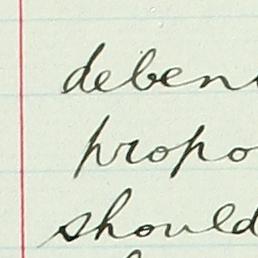 deben
propo
should